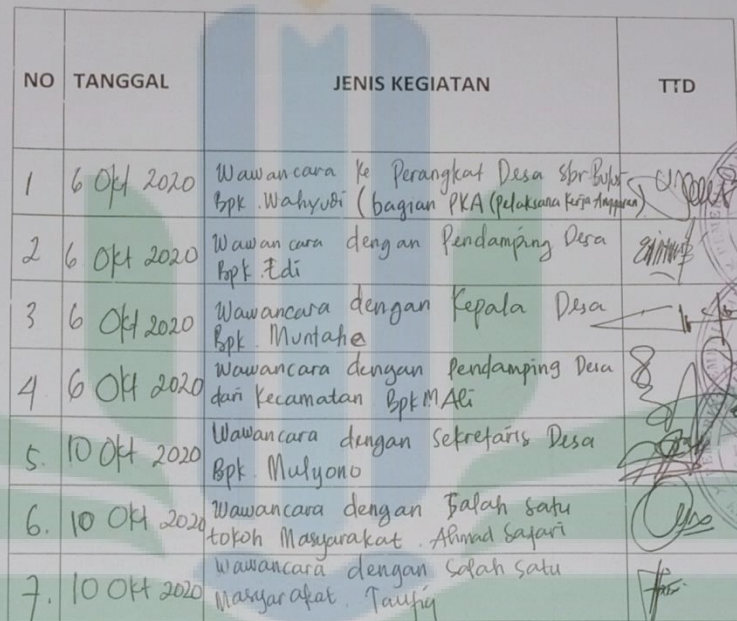 NO TANGGAL JENIS KEGIATAN TTD
1 6 Okt 2020 Wawancara ke Perangkat Desa sbr
Bpk. Wahyudi (bagian PKA (Pelaksana Kerja Anggaran)
2 6 Okt 2020 Wawancara dengan Pendamping Desa
Bpk. Edi
3 6 Okt 2020 Wawancara dengan Kepala Desa
Bpk. Muntaha
4 6 Okt 2020 Wawancara dengan Pendamping Desa
dari Kecamatan Bpk M Ali
5. 10 Okt 2020 Wawancara dengan Sekretaris Desa
Bpk. Mulyono
6. 10 Okt 2020 Wawancara dengan Salah satu
tokoh Masyarakat. Ahmad Safari
7. 10 Okt 2020 Wawancara dengan salah satu
Masyarakat. Taufiq